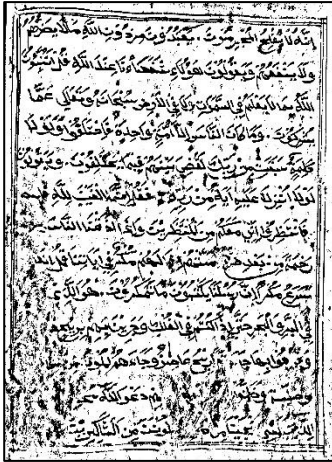 انه لا يفلح المجرمون ويعبدون من دون الله ما لا يضرهم
ولا ينفعهم ويقولون هؤلاء شفعاؤنا عند الله قل اتنبئون
الله بما لا يعلم في السموات ولا في الارض سبحانه وتعالى عما
يشركون وما كان الناس الا امة واحدة فاختلفوا ولولا
كلمة سبقت من ربك لقضي بينهم فيما فيه يختلفون ويقولون
لولا انزل عليه اية من ربه فقل انما الغيب لله
فانتظروا اني معكم من المنتظرين واذا اذقنا الناس
رحمة من بعد ضراء مستهم اذا لهم مكر في اياتنا قل الله
اسرع مكرا ان رسلنا يكتبون ما تمكرون هو الذي
في البر والبحر حتى اذا كنتم في الفلك وجرين بهم بريح
وفرحوا بها جاءتها ريح عاصف وجاءهم الموج من
دعوا الله
من الشاكرين